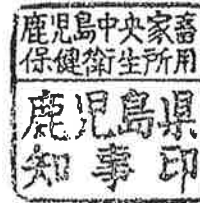 鹿児島中央家畜
保健衛生所用
鹿児島県
知事印